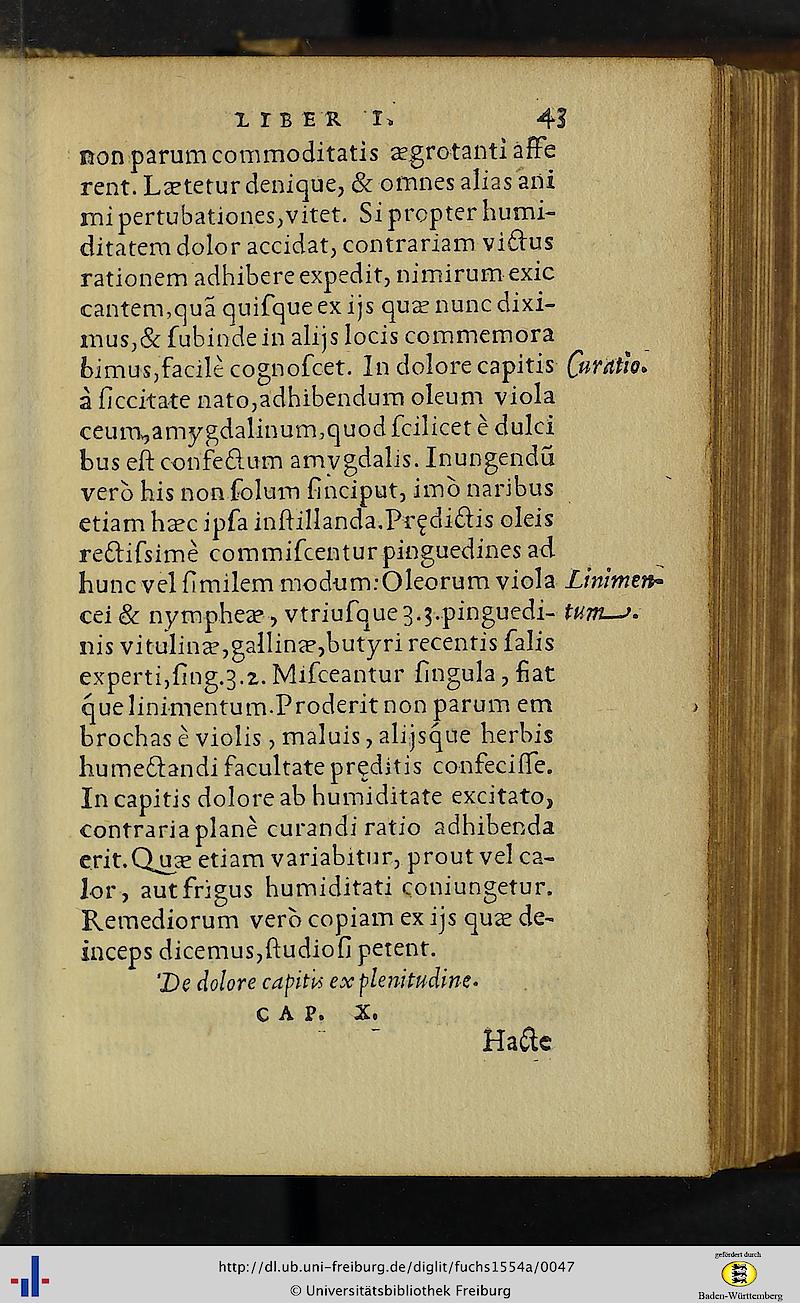 LIBER I. 43
non parum commoditatis ægrotanti affe
rent. Lætetur denique, & omnes alias ani
mi pertubationes, vitet. Si propter humi-
ditatem dolor accidat, contrariam victus
rationem adhibere expedit, nimirum exic
cantem, quã quiſque ex ijs quæ nunc dixi-
mus, & ſubinde in alijs locis commemora
bimus, facilè cognoſcet. In dolore capitis Curatio.
à ſiccitate nato, adhibendum oleum viola
ceum, amygdalinum, quod ſcilicet è dulci
bus eſt confectum amygdalis. Inungendũ
verò his non ſolum ſinciput, imò naribus
etiam hæc ipſa inſtillanda. Prędictis oleis
rectiſsimè commiſcentur pinguedines ad
hunc vel ſimilem modum: Oleorum viola Linimen-
cei & nympheæ, vtriuſque ʒ.ʒ. pinguedi- tum.
nis vitulinæ, gallinæ, butyri recentis ſalis
experti, ſing. ʒ.2. Miſceantur ſingula, fiat
q́ue linimentum. Proderit non parum em
brochas è violis, maluis, alijsq́ue herbis
humectandi facultate pręditis confeciſſe.
In capitis dolore ab humiditate excitato,
contraria planè curandi ratio adhibenda
erit. Quæ etiam variabitur, prout vel ca-
lor, aut frigus humiditati coniungetur.
Remediorum verò copiam ex ijs quæ de-
inceps dicemus, ſtudioſi petent.
De dolore capitis ex plenitudine.
CAP. X.
Hacte
http://dl.ub.uni-freiburg.de/diglit/fuchs1554a/0047
© Universitätsbibliothek Freiburg
gefördert durch
Baden-Württemberg